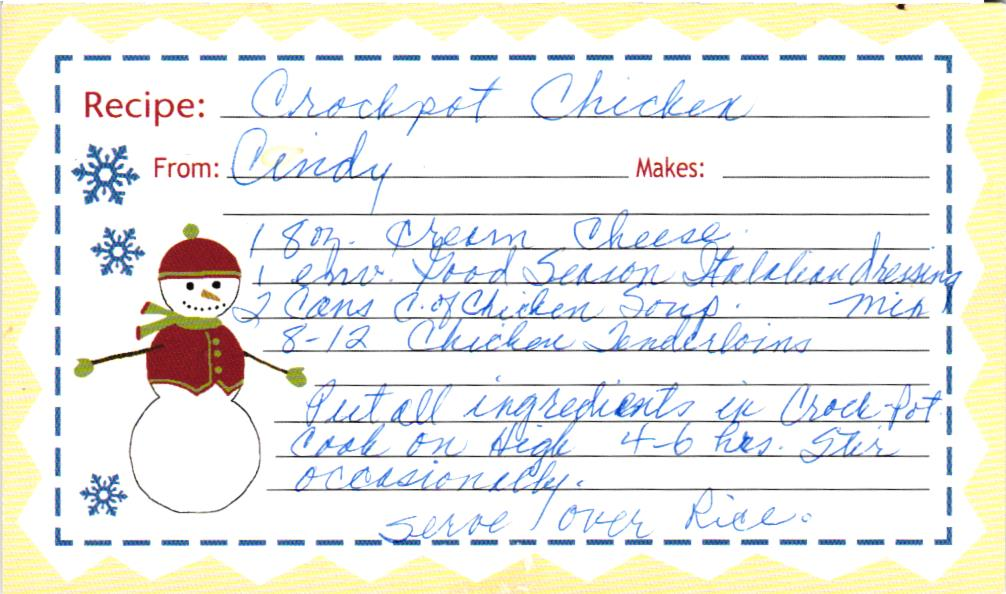 Recipe: Crockpot Chicken
From: Cindy Makes:
1 8 oz. Cream Cheese.
1 env. Good Season Italalian dressing
2 Cans C. of Chicken Soup. mix
8-12 Chicken Tenderloins
Put all ingredients in Crock-Pot
Cook on High 4-6 hrs. Stir
occasionally.
Serve over Rice.